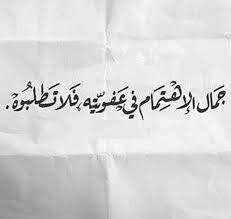 جمال الإهْتِمام في عَفويَّتِه، فَلا تَطلبُوهْ.